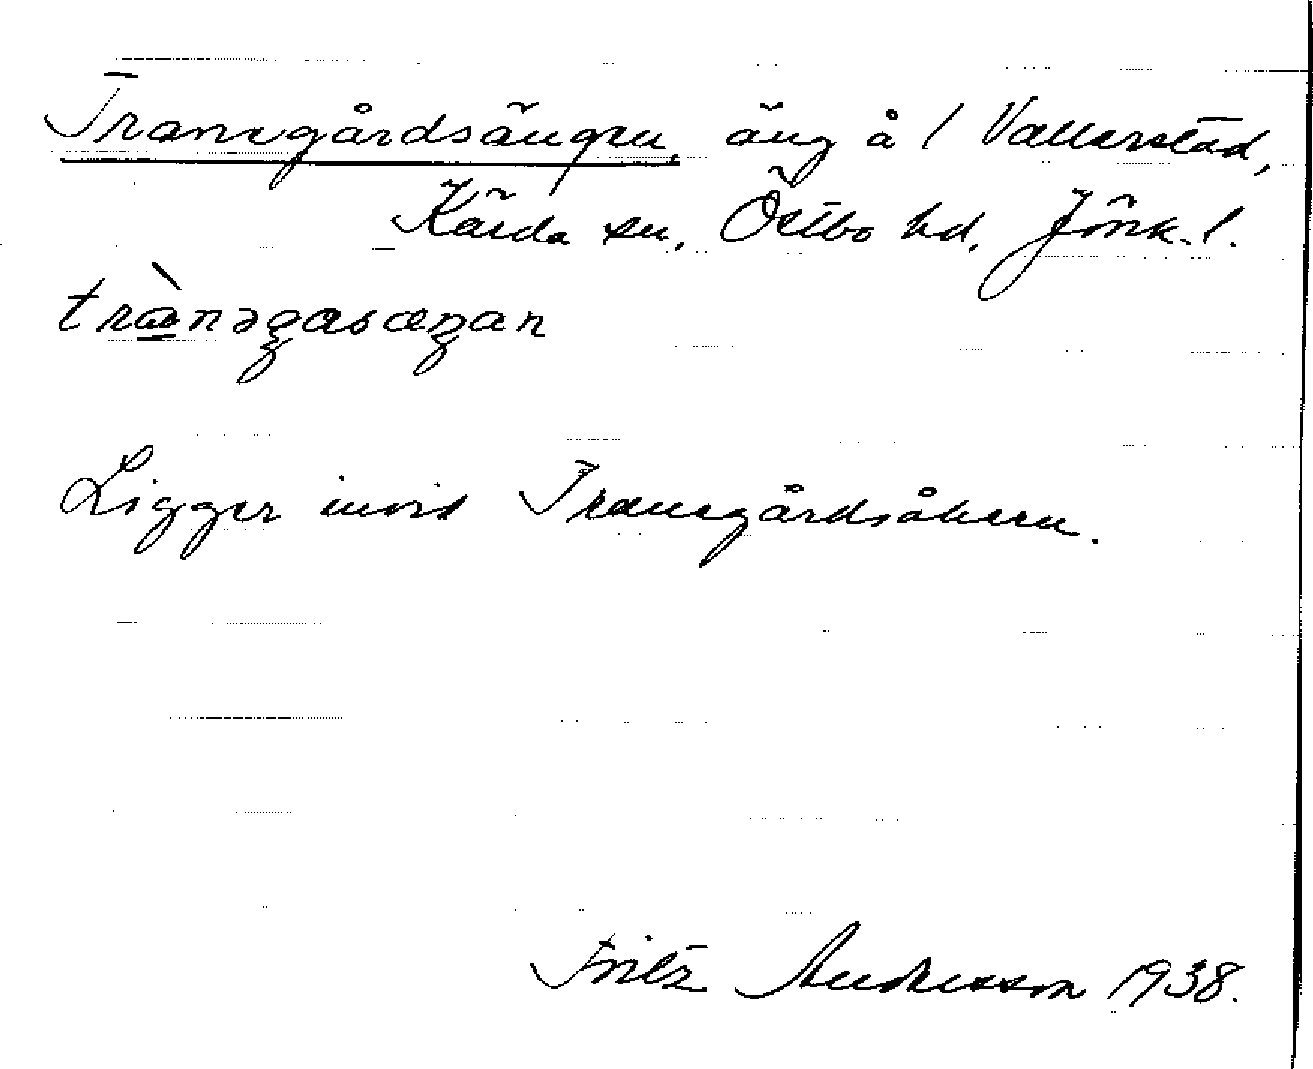 Tranegårdsängen, äng å / Vallerstad,
Kärda sn, Östbo hd, Jönk. l.
trànəgasæŋan
Ligger invid Tranegårdsåkern.
Fritz Andersson 1938.